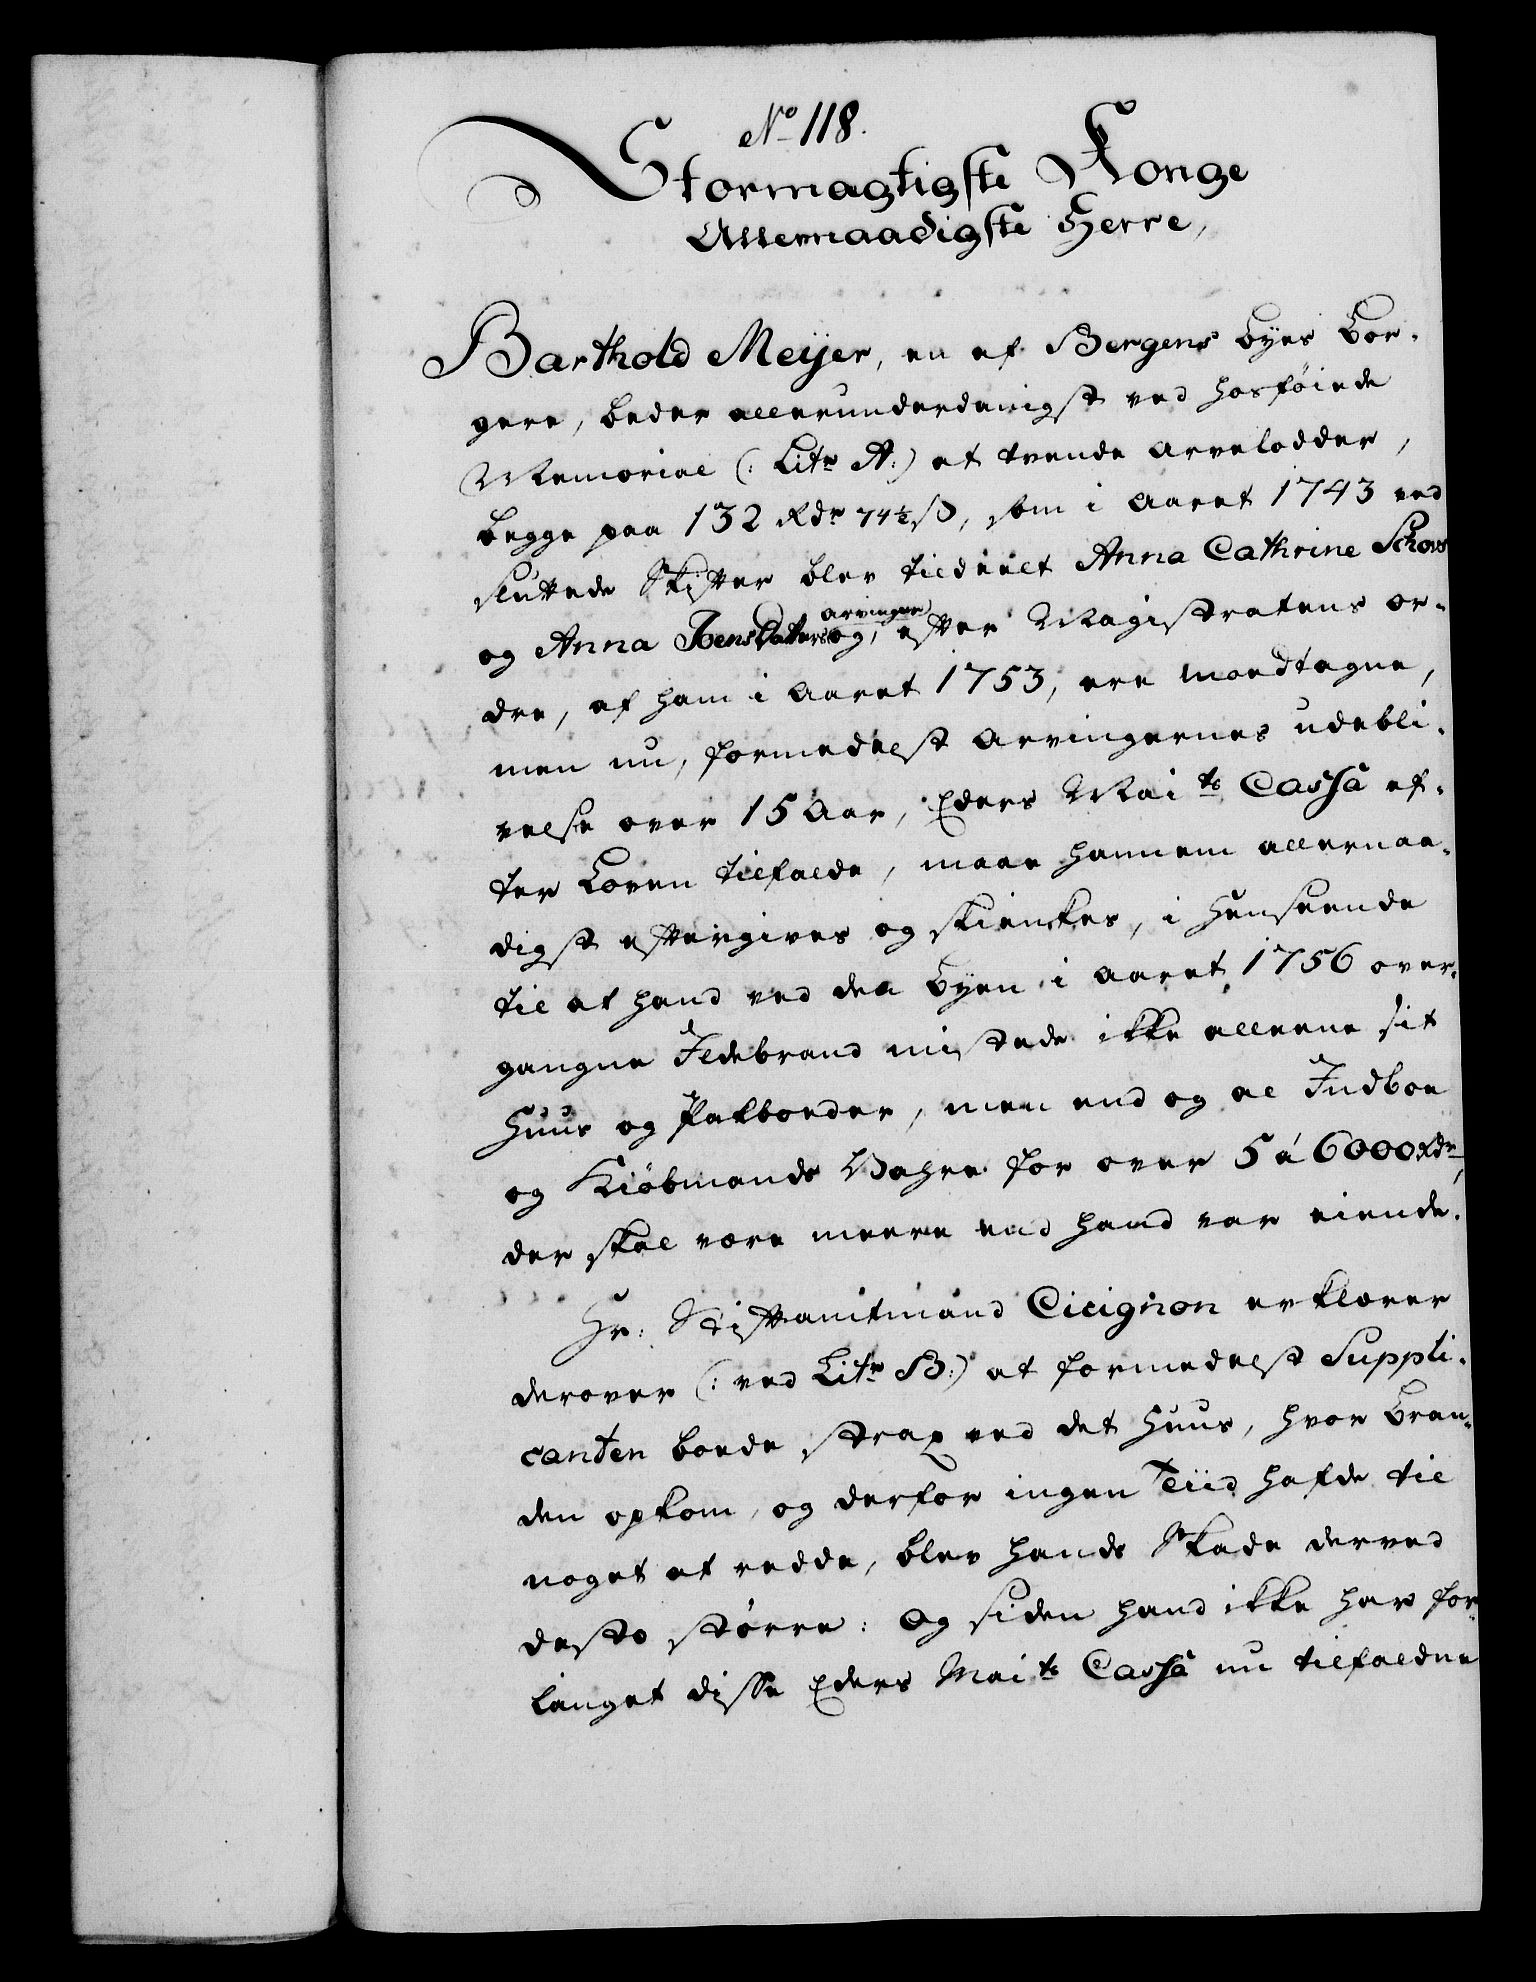 No 118.
Stormagtigste Konge
Allernaadigste Herre,
Barthold Meÿer, en af Bergens Byes Bor-
gere, beder allerunderdanigst ved hosføiede
Memorial (: Litr A:) at tvende Arvelodder,
begge paa 132 Rdr 74½ ß, som i Aaret 1743 ved
sluttede Skifter blev tildeelt Anna Cathrine Schors
og Anna JensDatters arvinger og, efter Magistratens or-
dre, af ham i Aaret 1753, ere modtagne,
men nu, formedelst Arvingernes udebli-
velse over 15 Aar, Eders Maits Cassa ef-
ter Loven tilfalde, maae hannem allernaa-
digst eftergives og skienkes, i Henseende
til at hand ved den Byen i Aaret 1756 over-
gangne Ildebrand mistede ikke alleene sit
Huus og Pakboeder, men end og al Indboe
og Kiøbmands Vahre for over 5 á 6000 Rdr,
der skal være meere end hand var eiende.
Hr: Stiftamtmand Cicignon erklærer
derover (: ved Litr B:) at formedelst Suppli-
canten boede strax ved det Huus, hvor Bran-
den opkom, og derfor ingen Tiid hafde til
noget at redde, blev hands Skade derved
desto større: Og siden hand ikke har for-
langet disse Eders Maits Cassa nu tilfaldne